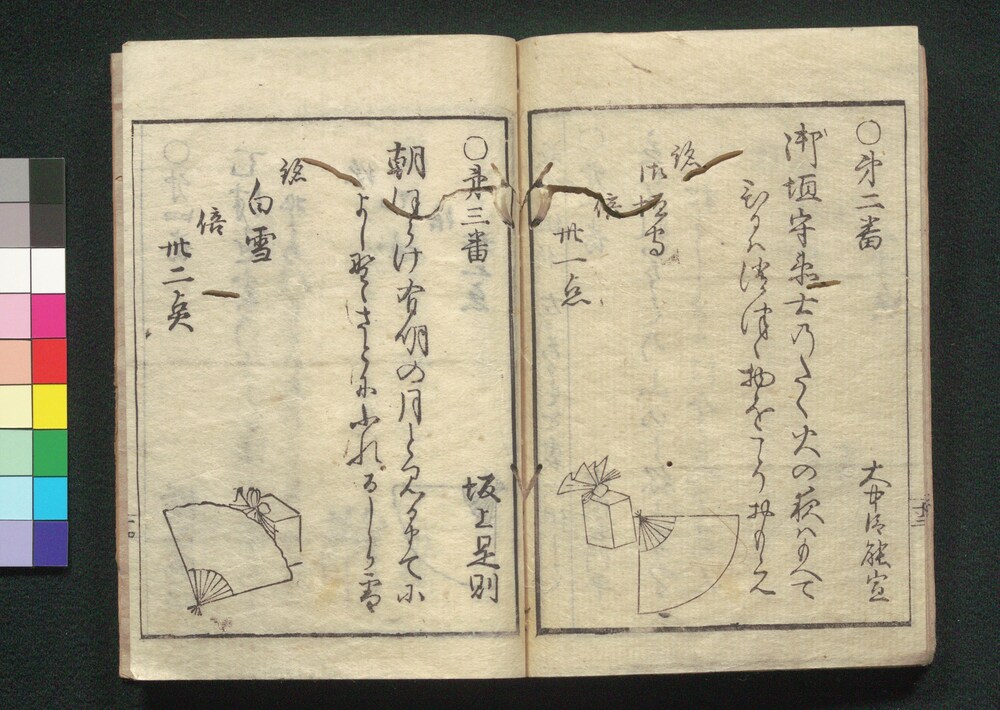 ○第二番
大中臣能宣
御垣守衛士のたく火の夜はもえて
ひるは消つゝ物をこそおもへ
銘
御垣守
倍
卅一点
○第三番
坂上是則
朝ほらけ有明の月と見るまてに
よし野ゝさとにふれるしら雪
銘
白雪
倍
卅二点